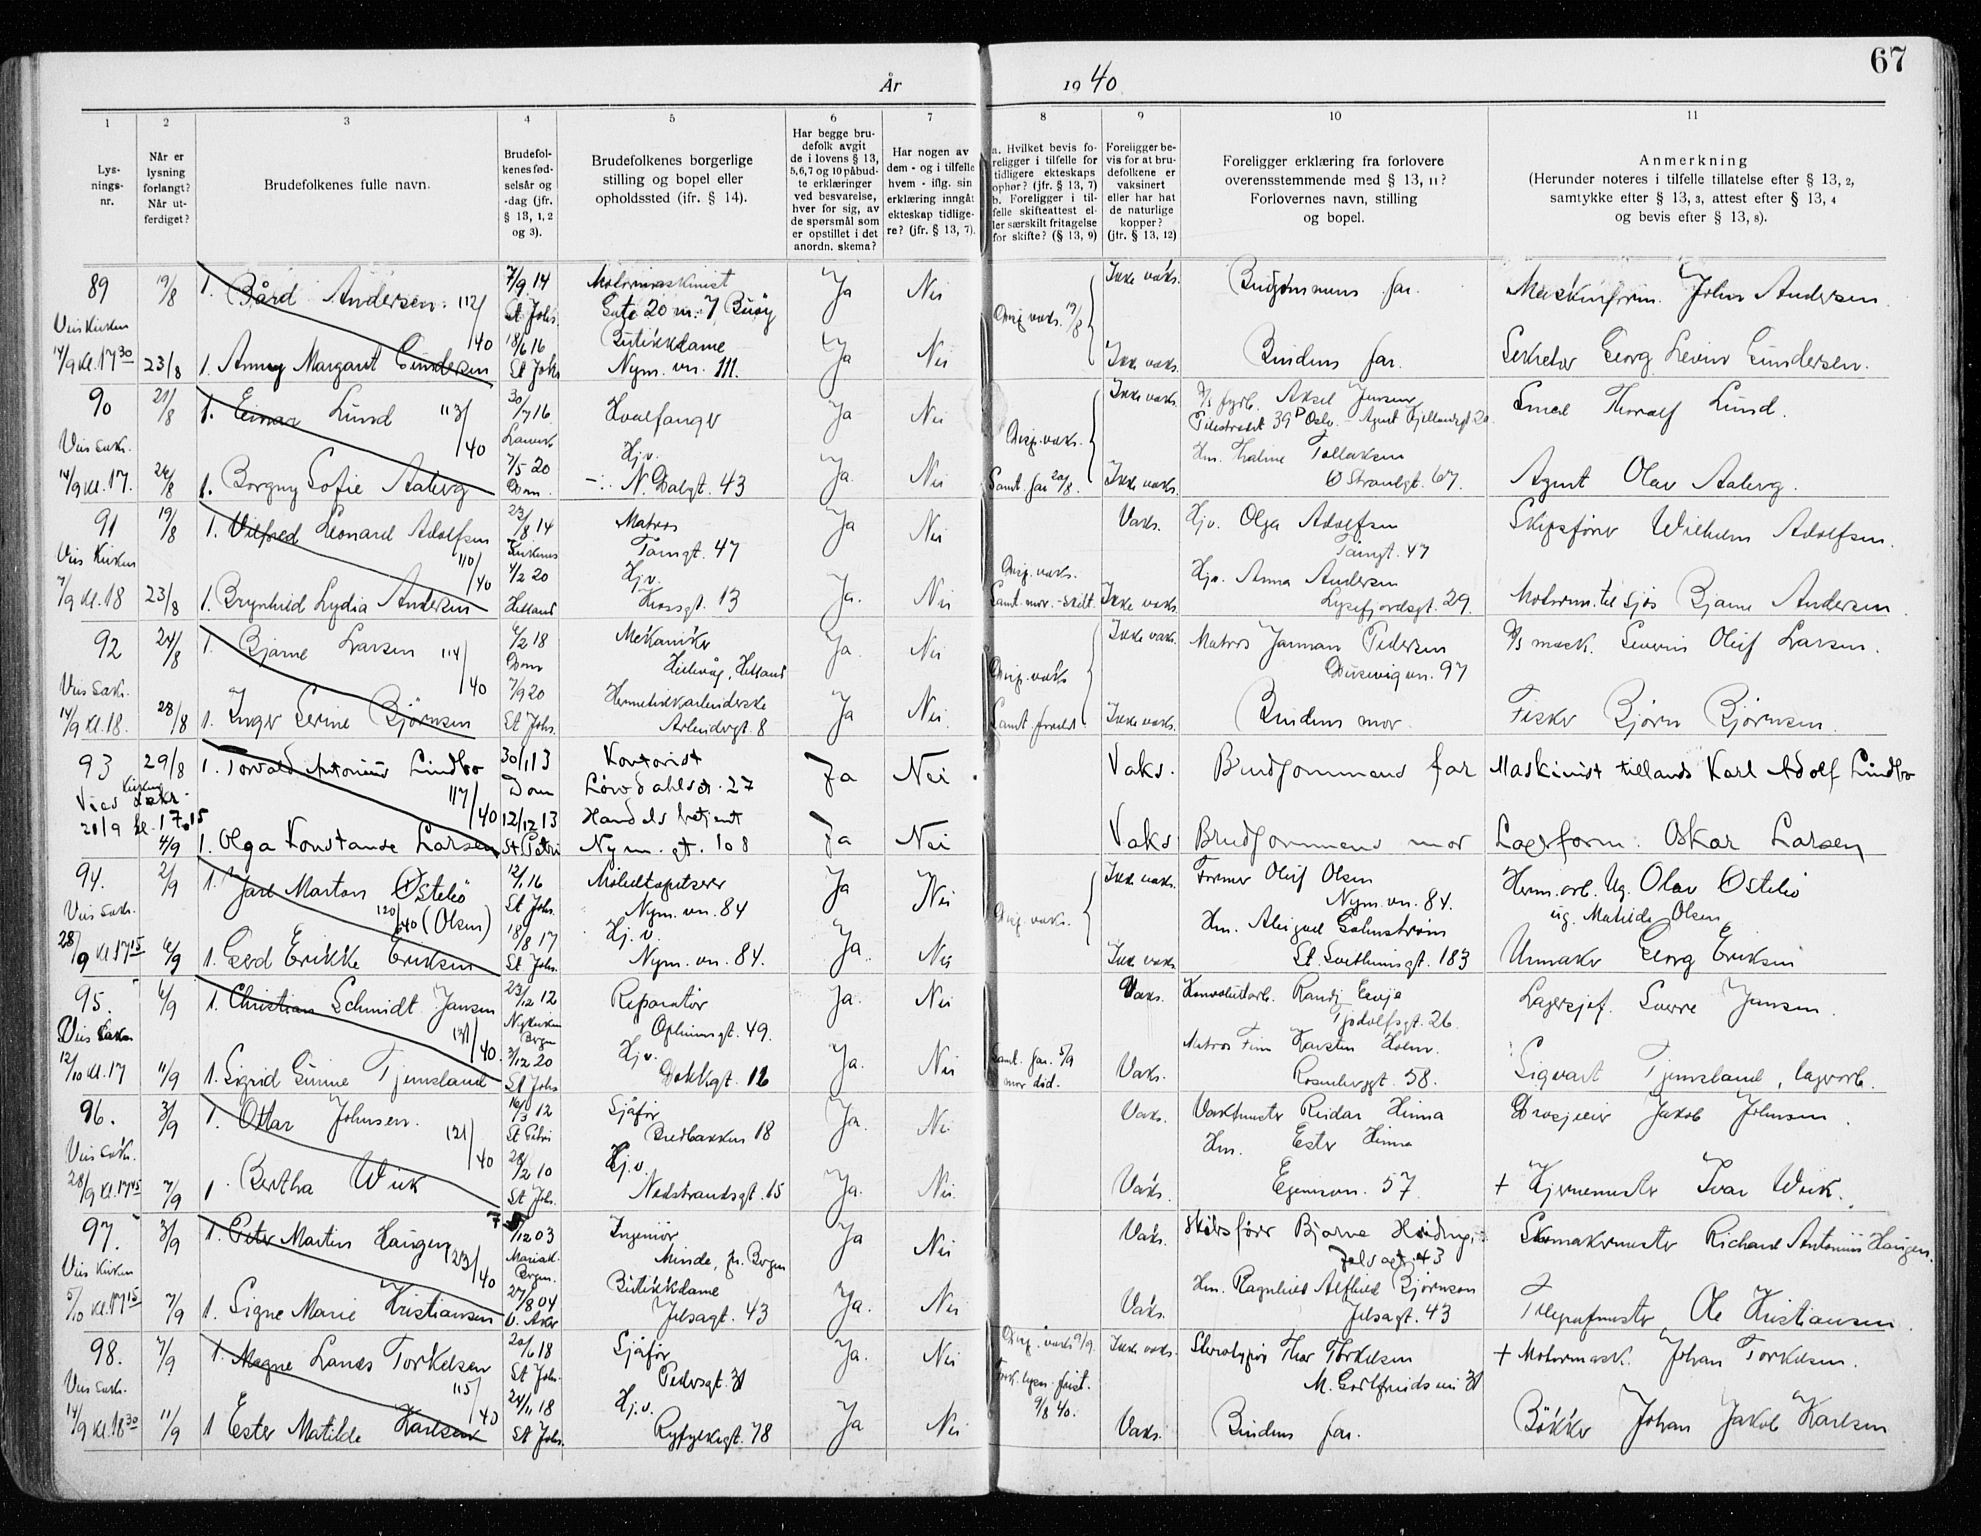 67
År 1940
1 2 3 4 5 6 7 8 9 10 11
Lys-
nings-
nr.
Når er
lysning
forlangt?
Når ut-
ferdiget?
Brudefolkenes fulle navn.
Brudefol-
kenes fød-
selsår og
-dag (jfr.
§ 13, 1, 2
og 3).
Brudefolkenes borgerlige
stilling og bopel eller
opholdssted (ifr. § 14).
Har begge bru-
defolk avgit
de i lovens § 13,
5,6,7 og 10 påbud-
te erklæringer
ved besvarelse,
hver for sig, av
de spørsmål som
er opstillet i det
anordn. skema?
Har nogen av
dem - og i tilfelle
hvem - iflg. sin
erklæring inngåt
ekteskap tidlige-
re? (jfr. § 13, 7).
a. Hvilket bevis fo-
religger i tilfelle for
tidligere ekteskaps
ophør? (jfr. § 13, 7)
b. Foreligger i til-
felle skifteattest el-
ler særskilt fritagelse
for skifte? (§ 13, 9)
Foreligger be-
vis for at bru-
defolkene er
vaksinert
eller har hat
de naturlige
kopper?
(jfr. § 13, 12)
Foreligger erklæring fra forlovere
overensstemmende med § 13, 11?
Forlovernes navn, stilling
og bopel.
Anmerkning
(Herunder noteres i tilfelle tillatelse efter § 13, 2,
samtykke efter § 13, 3, attest efter § 13, 4
og bevis efter § 13, 8).
89 19/8 1. Bård Andersen. 112/40 7/9 14 St. Johs. Motormaskinist Gate 20 nr. 7 Buøy Ja Nei Disp. vaks. 17/8 Ikke vaks. Brudgommens far. Maskinform. John Andersen.
Vies Kirken
14/9 kl. 17 30 23/8 1. Anny Margaret Gundersen 18/6 16 St Johs Butikkdame Nym. vn. 111. Ja Nei Ikke vaks. Brudens far. Sekretær Georg Levin Gundersen.
90 21/8 1. Einar Lund 113/40 30/7 16 Larvik Hvalfanger Ja Nei Disp. vaks. Ikke vaks. Aksel Jensen Pilestredet 39 Oslo Smed Thoralf Lund.
Vies sakr.
14/9 kl. 17. 26/8 1. Borgny Sofie Aaberg 7/5 20 Dom. Hj.v. N. Dalgt. 43 Ja. Nei Samt. far 20/8. Ikke vaks. Hm. Thaline Tollaksen Ø Strandgt. 67. Agent Olav Aaberg.
91 19/8 1. Vilfred Leonard Adolfsen 110/40 23/8 14 Matros Tangt. 47 Ja Nei Vaks. Hjv. Olga Adolfsen Tangt. 47 Skipsfører Wilhelm Adolfsen.
Vies Kirken
7/9 kl. 18 23/8 1. Brynhild Lydia Andersen 4/2 20 Hetland Hj.v. Krossgt. 13 Ja. Nei Disp. vaks. Samt. mor. - skilt. Ikke vaks. Hjv. Anna Andersen Lysefjordsgt. 29. Motorm. til sjøs Bjarne Andersen.
92 24/8 1. Bjarne Larsen 114/40 6/2 18 Dom Mekaniker Hillevåg, Hetland Ja. Nei Disp. vaks Ikke vaks. Matros Pedersen Dusevigvn. 97 D/S mask. Severin Oluf Larsen.
Vies sakr.
14/9 kl. 18. 28/8 1. Inger Serine Bjørnsen 7/9 20 St Johs. Hermetikkarbeiderske Arbeidergt. 8 Ja Nei. Samt foreldr. Ikke vaks. Brudens mor. Fisker Bjørn Bjørnsen.
93 29/8 1. Torvald Antonius Lindbo 117/40 30/1 13 Dom Kontorist Løwdahlsgt. 27 Ja Nei. Vaks. Brudgommens far Maskinist tillands Karl Adolf Lindbo
Vies Kirken
21/9 kl. 17.15 4/9 1. Olga Konstanse Larsen 12/12 13 St Petri Handelsbetjent Nym. gt. 108 Ja Nei Vaks Brudgommens mor Lagerform. Oskar Larsen
94. 2/9 1. Jarl Marton Østebø 120/40 (Olsen) 12/1 16 St. Johs. Møbeltapetserer Nym. vn. 84 Ja Nei Disp. vaks. Ikke vaks. Former Oluf Olsen Nym. vn. 84. Herm. arb. Ug. Olav Østebø ug. Matilde Olsen
Vies sakr.
28/9 kl 17 15 6/9 1. Gerd Erikke Eriksen 18/8 17 St. Johs. Hj.v. Nym. vn. 84. Ja. Nei Ikke vaks. Hm. Abigael Holmstrøm St. Svithunsgt. 183 Urmaker Georg Eriksen
95. 6/9 1. Christian Schmidt Jansen 131/40 23/12 12 Nykirken Bergen Reparatør Opheimsgt. 49. Ja. Nei Vaks. Konvoluttarb. Randi Tjodolfsgt. 26. Lagersjef. Sverre Jansen.
Vies Sakr
12/10 kl. 17 11/9 1. Sigrid Gunne Tjemsland 3/12 20 St Johs Hj.v. Dokkgt. 12 Ja. Nei Samt. far. 5/9 mor død. Vaks. Matros Finn Karsten Holm. Rosenberggt. 58. Sigvart Tjemsland, lagerarb.
96. 3/9 1. Ottar Johnsen. 121/40 16/3 12 St Petri Sjåfør Bredbakken 18 Ja. Nei Vaks. Vaktmester Reidar Hinna Drosjeeier Jakob Johnsen.
Vies sakr.
28/9 kl. 17 45 7/9 1. Bertha Wiik 28/2 10 St. Johs. Hj.v. Nedstrandsgt. 15 Ja. Nei. Vaks. Hm. Ester Hinna Egenesvn. 57. + Hjernemester Ivar Wiik.
97. 3/9 1. Peter Martin Haugen 123/40 7/12 03 Mariak. Bergen. Ingeniør Minde, pr. Bergen Ja Nei Vaks. Skibsfører Bjarne Jelsagt. 43 Skomakermester Richard Antonius Haugen.
Vies Kirken
5/10 kl. 17 15 7/9 1. Signe Marie Kristiansen 27/8 04 V. Aker Butikkdame Jelsagt. 43 Ja. Nei Vaks. Hm. Ragnhild Alfhild Bjørnson Jelsagt. 43 Telegrafmester Ole Kristiansen.
98. 7/9 1. Magne Lands Torkelsen 115/40 20/6 18 St Johs. Sjåfør Pedersgt. 31 Ja. Nei Disp. vaks 9/9. Ikke vaks. Stereotypør Thor Torkelsen M. Gotfredsens vei 31 + Motormask. Johan Torkelsen.
Vies sakr.
14/9 kl. 18 30 11/9 1 Ester Matilde Karlsen 24/11 18 St Johs. Hj.v. Ryfylkegt. 78 Ja Nei 9/8 40. Vaks. Brudens far. Bøkker Johan Jakob Karlsen